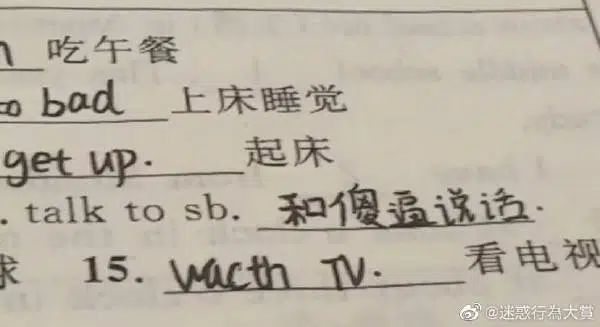 吃午餐
bad 上床睡觉
get up. 起床
. talk to sb. 和傻逼说话.
球 15. wacth TV. 看电视
@迷惑行為大賞